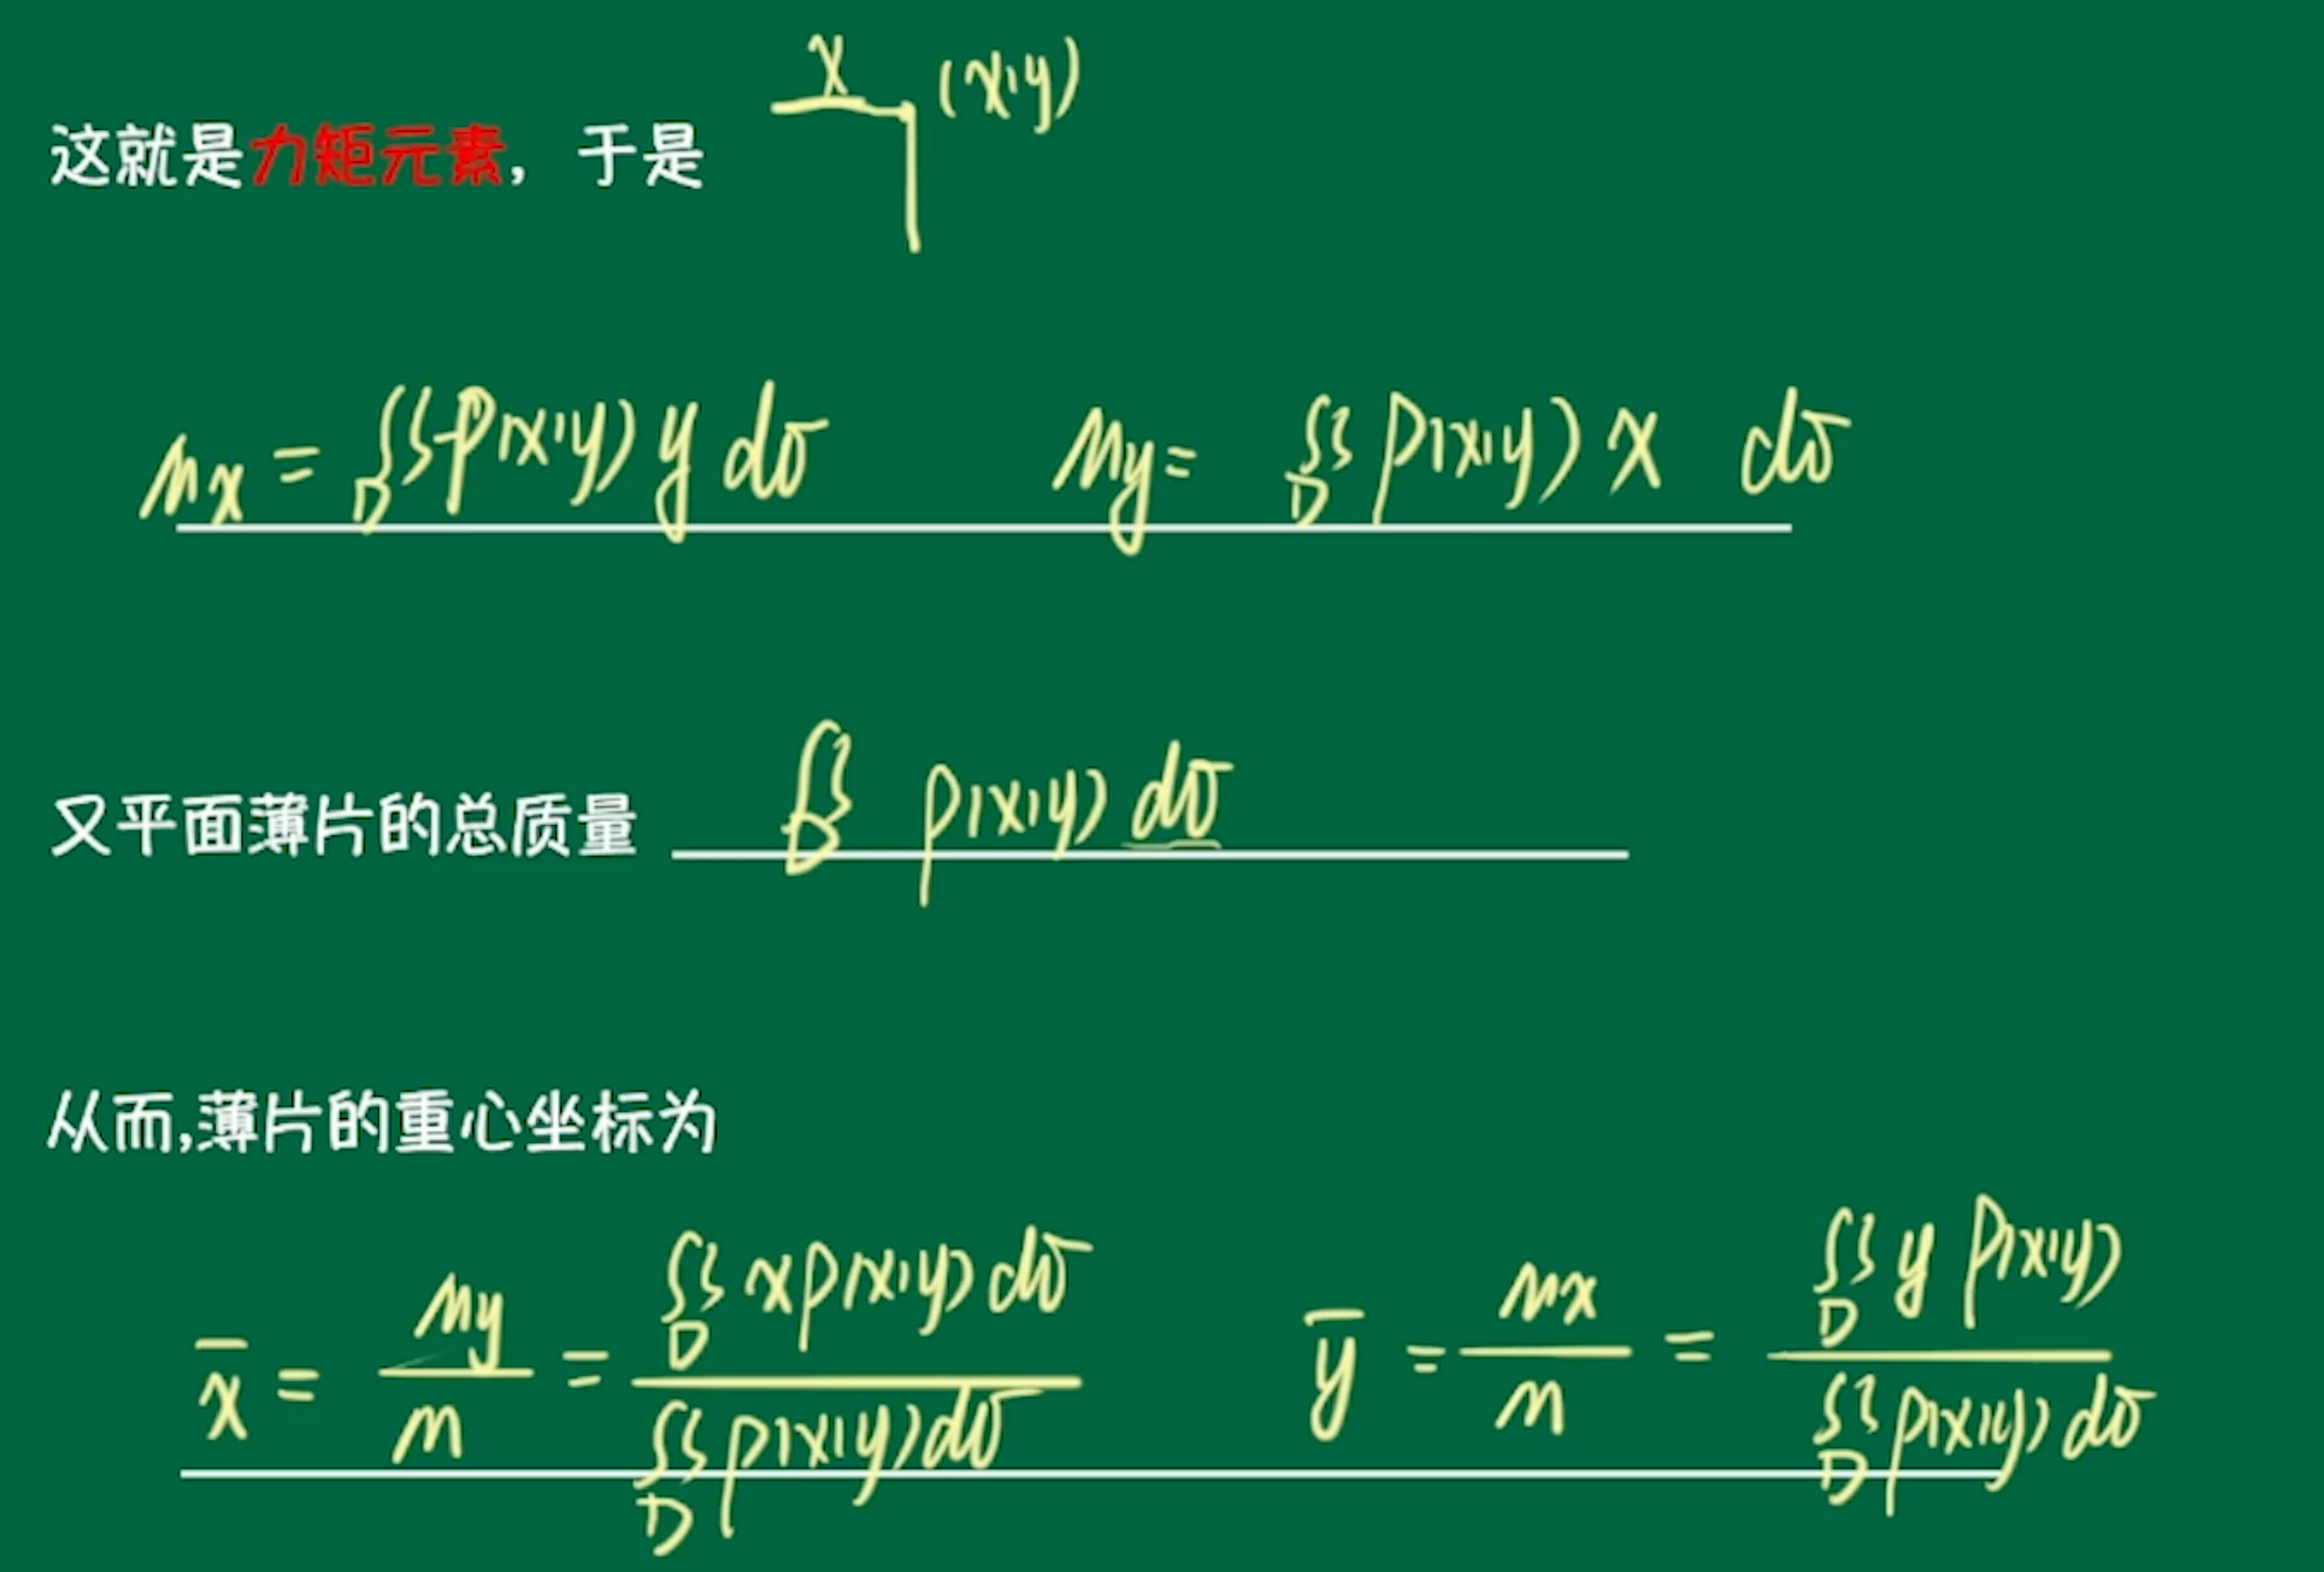 x (x,y)
这就是力矩元素，于是
Mx = ∬D ρ(x,y) y dσ My = ∬D ρ(x,y) x dσ
又平面薄片的总质量 ∬D ρ(x,y) dσ
从而,薄片的重心坐标为
x̄ = My/M = ∬D xρ(x,y)dσ / ∬D ρ(x,y)dσ ȳ = Mx/M = ∬D y ρ(x,y) / ∬D ρ(x,y)dσ